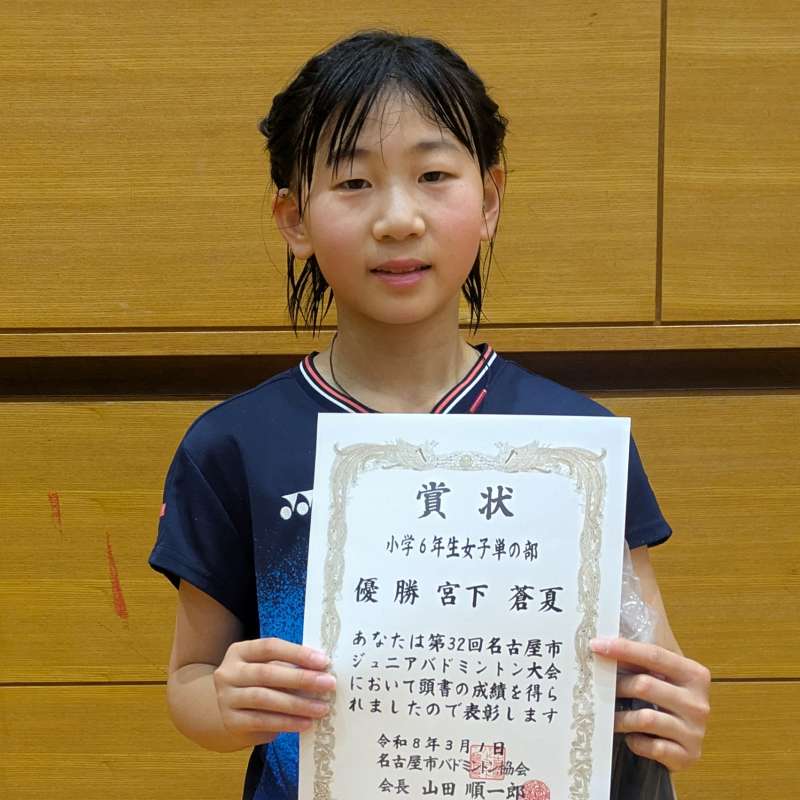 賞状
小学6年生女子単の部
優勝 宮下 蒼夏
あなたは第32回名古屋市
ジュニアバドミントン大会
において頭書の成績を得ら
れましたので表彰します
令和8年3月1日
名古屋市バドミントン協会
会長 山田 順一郎